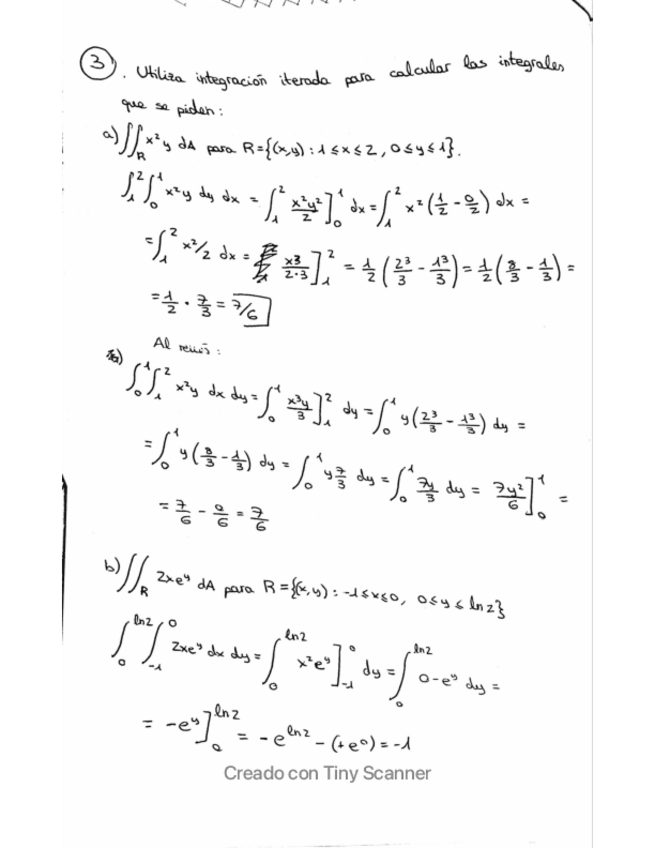 3. Utiliza integración iterada para calcular las integrales
que se piden:
a) ∬_R x²y dA para R={(x,y): 1≤x≤2, 0≤y≤1}.
∫₁² ∫₀¹ x²y dy dx = ∫₁² x²y²/2 ]₀¹ dx = ∫₁² x² (1/2 - 0/2) dx =
= ∫₁² x²/2 dx = x³/2·3 ]₁² = 1/2 (2³/3 - 1³/3) = 1/2 (8/3 - 1/3) =
= 1/2 · 7/3 = 7/6
Al revés:
∫₀¹ ∫₁² x²y dx dy = ∫₀¹ x³y/3 ]₁² dy = ∫₀¹ y (2³/3 - 1³/3) dy =
= ∫₀¹ y (8/3 - 1/3) dy = ∫₀¹ y 7/3 dy = ∫₀¹ 7y/3 dy = 7y²/6 ]₀¹ =
= 7/6 - 0/6 = 7/6
b) ∬_R 2xe^y dA para R={(x,y): -1≤x≤0, 0≤y≤ln2}
∫₀^ln2 ∫₋₁⁰ 2xe^y dx dy = ∫₀^ln2 x²e^y ]₋₁⁰ dy = ∫₀^ln2 0-e^y dy =
= -e^y ]₀^ln2 = -e^ln2 - (+e⁰) = -1
Creado con Tiny Scanner